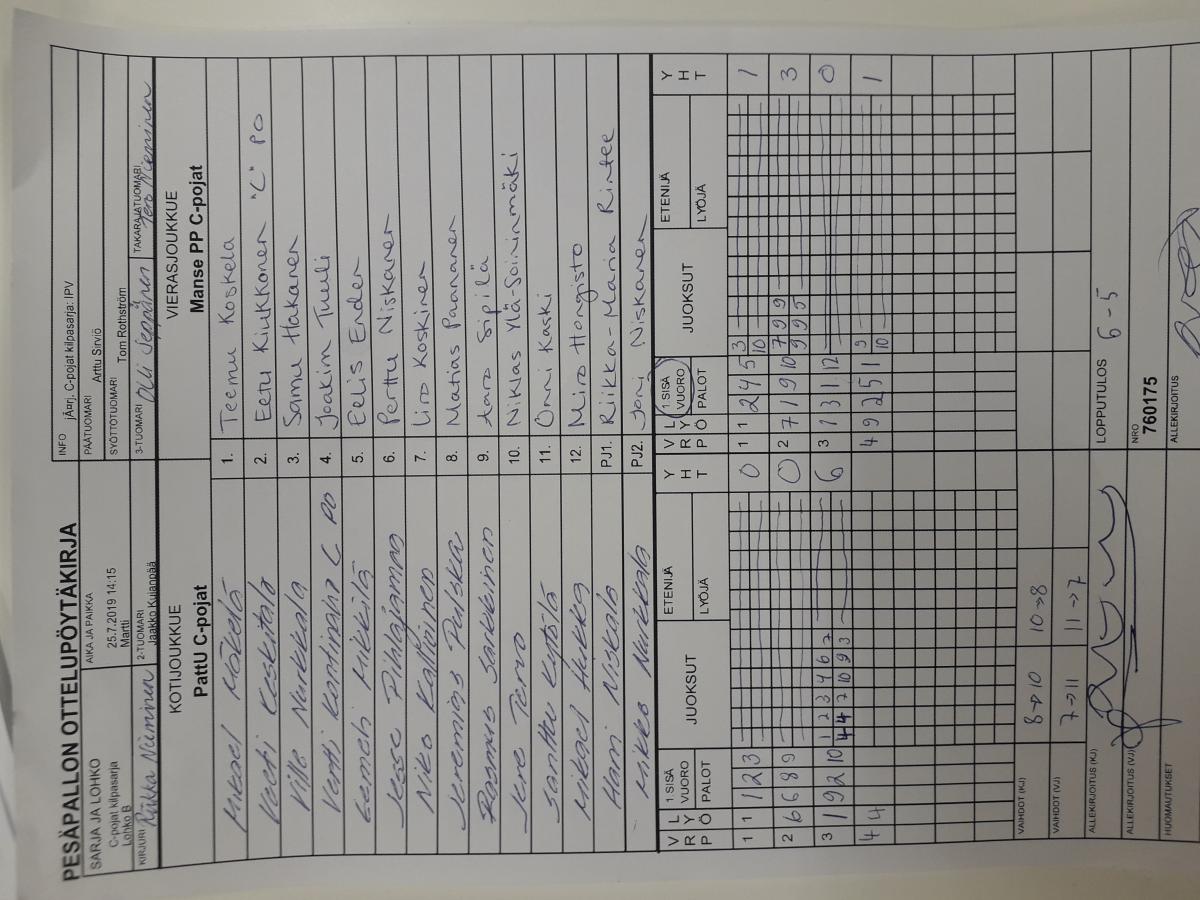 PESÄPALON OTTELUPÖYTÄKIRJA
SARJA JA LOHKO
C-pojat kilpasarja
Lohko B
AIKA JA PAIKKA
25.7.2019 14:15
Martti
INFO jÃ¤rj. C-pojat kilpasarja: IPV
PÄÄTUOMARI Arttu Sirviö
SYÖTTOTUOMARI Tom Rothström
KIRJURI Riikka Nieminen
2-TUOMARI Jaakko Kujanpää
3-TUOMARI Olli Seppänen
TAKARAJATUOMARI Tero Nieminen
KOTIJOUKKUE
PattU C-pojat
VIERASJOUKKUE
Manse PP C-pojat
Mikael Mäkelä 1. Teemu Koskela
Veeti Keskitalo 2. Eetu Kiukkonen "C" PO
Ville Narkkala 3. Samu Hakanen
Vertti Kantimaa C PO 4. Joakim Tuuli
Eemeli Mikkilä 5. Eelis Ender
Jesse Pihlajamaa 6. Perttu Niskanen
Niko Kalliainen 7. Liro Koskinen
Jeremias Pulska 8. Matias Paananen
Rasmus Sarkkinen 9. Aaro Sipilä
Jere Tervo 10. Niklas Ylä-Soininmäki
Santtu Kytölä 11. Onni Kaski
Mikael Heikkg 12. Miro Hongisto
Harri Niskala PJ1. Riikka-Maria Rintee
Mikko Narkkala PJ2. Joni Niskanen
V R P
L Y Ö
1 SISÄ VUORO
PALOT
JUOKSUT
ETENIJÄ
LYÖJÄ
Y H T
V R P
L Y Ö
1 SISÄ VUORO
PALOT
JUOKSUT
ETENIJÄ
LYÖJÄ
Y H T
1 1 1 2 3 0
2 6 6 8 9 0
3 1 9 2 10 1 2 3 4 6 7 6
4 4 7 10 9 3
4 4
1 1 2 4 5 3 1
10
2 7 1 9 10 7 9 9 3
9 9 5
3 1 3 11 12 0
4 9 2 5 1 9 1
10
VAIHDOT (KJ) 8→10 10→8
VAIHDOT (VJ) 7→11 11→7
LOPPUTULOS 6-5
ALLEKIRJOITUS (KJ)
ALLEKIRJOITUS (VJ)
NRO
760175
HUOMAUTUKSET
ALLEKIRJOITUS